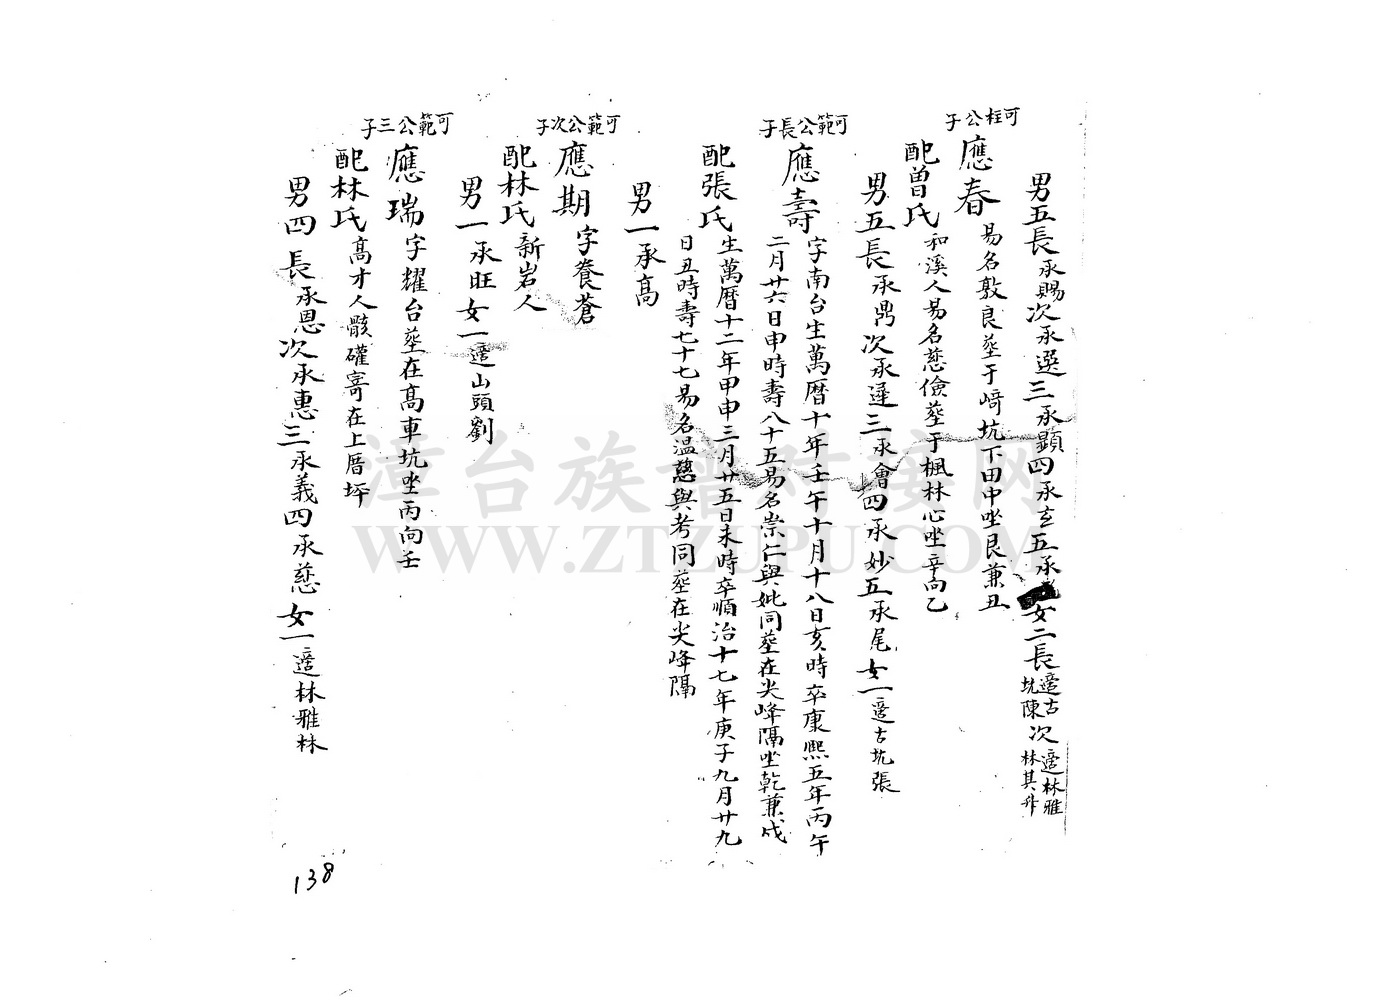 男五長承賜次承選三承顕四承玄五承 女二長適古坑陳次適林雅林其升
可柱公子
應春易名敦良塟于﨑坑下田中坐艮兼丑
配曽氏和溪人易名慈儉塟于楓林心坐辛向乙
男五長承鼎次承逹三承會四承妙五承尾女一適古坑張
可範公長子
應壽字南台生萬曆十年壬午十月十八日亥時卒康熙五年丙午
二月廿六日申時壽八十五易名崇仁與妣同塟在尖峰隔坐乾兼戌
配張氏生萬曆十二年甲申三月廿五日未時卒順治十七年庚子九月廿九
日丑時壽七十七易名温慈與考同塟在尖峰隔
男一承高
可範公次子
應期字養蒼
配林氏新岩人
男一承旺女一適山頭劉
可範公三子
應瑞字耀台塟在高車坑坐丙向壬
配林氏高才人骸礶寄在上厝坪
男四長承恩次承惠三承義四承慈女一適林雅林
138
漳台族谱对接网
WWW.ZTZUPU.COM